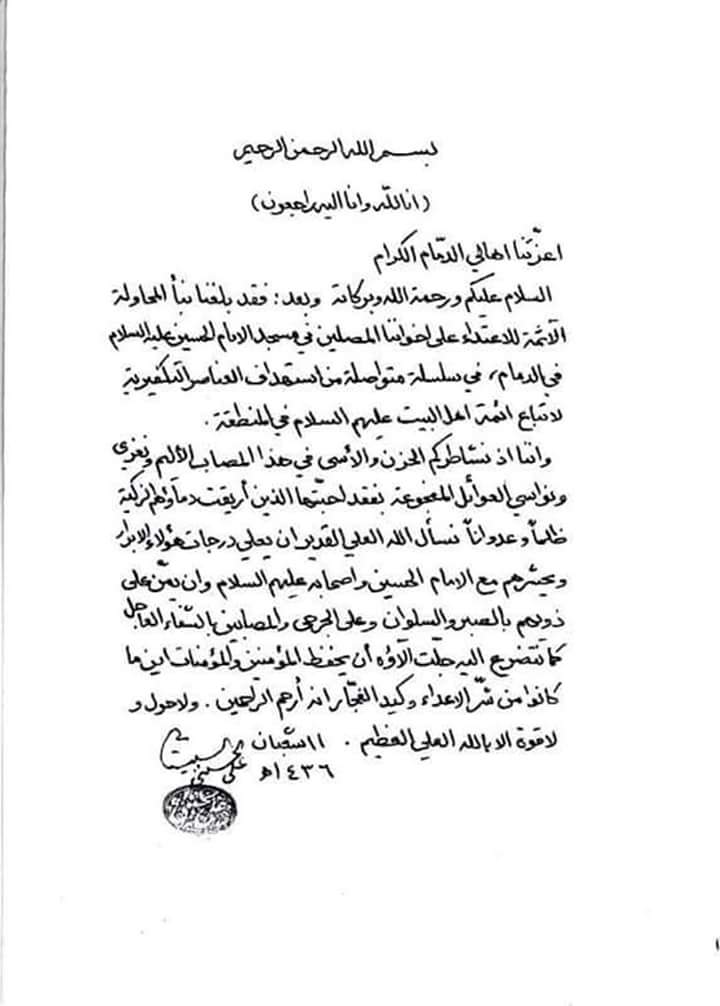 بسم الله الرحمن الرحيم
(انا لله وانا اليه راجعون)
اعزّتنا اهالي الدمّام الكرام
السلام عليكم ورحمة الله وبركاته وبعد: فقد بلغنا نبأ المحاولة
الآثمة للاعتداء على اخواننا المصلين في مسجد الامام الحسين عليه السلام
في الدمام، في سلسلة متواصلة من استهداف العناصر التكفيرية
لاتباع ائمة اهل البيت عليهم السلام في المنطقة.
واننا اذ نشاطركم الحزن والأسى في هذا المصاب الأليم ونعزي
ونواسي العوائل المفجوعة بفقد احبتها الذين أريقت دماؤهم الزكية
ظلماً وعدواناً نسأل الله العلي القدير ان يعلي درجات هؤلاء الابرار
ويحشرهم مع الامام الحسين واصحابه عليهم السلام وان يمنّ على
ذويهم بالصبر والسلوان وعلى الجرحى والمصابين بالشفاء العاجل
كما نتضرع اليه جلّت آلاؤه أن يحفظ المؤمنين والمؤمنات اين ما
كانوا من شرّ الاعداء وكيد الفجّار انه أرحم الراحمين. ولا حول و
لا قوة الا بالله العلي العظيم. ١١ شعبان
١٤٣٦هـ
علي الحسيني السيستاني
١